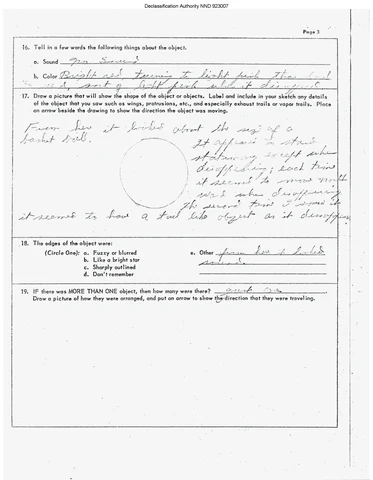 Declassification Authority NND 923007
Page 3
16. Tell in a few words the following things about the object.
a. Sound No Sound
b. Color Bright red turning to light pink then back
to red, sort of light pink when it disappeared
17. Draw a picture that will show the shape of the object or objects. Label and include in your sketch any details
of the object that you saw such as wings, protrusions, etc., and especially exhaust trails or vapor trails. Place
an arrow beside the drawing to show the direction the object was moving.
From here it looked about the size of a
basket ball.
It appears to stand
stationary except when
disappearing; each time
it seemed to move north
west when disappearing
The second time I seen it
it seemed to have a tail like object as it disappear
18. The edges of the object were:
(Circle One): a. Fuzzy or blurred
b. Like a bright star
c. Sharply outlined
d. Don't remember
e. Other from here it looked
round.
19. IF there was MORE THAN ONE object, then how many were there?
Draw a picture of how they were arranged, and put an arrow to show the direction that they were traveling.